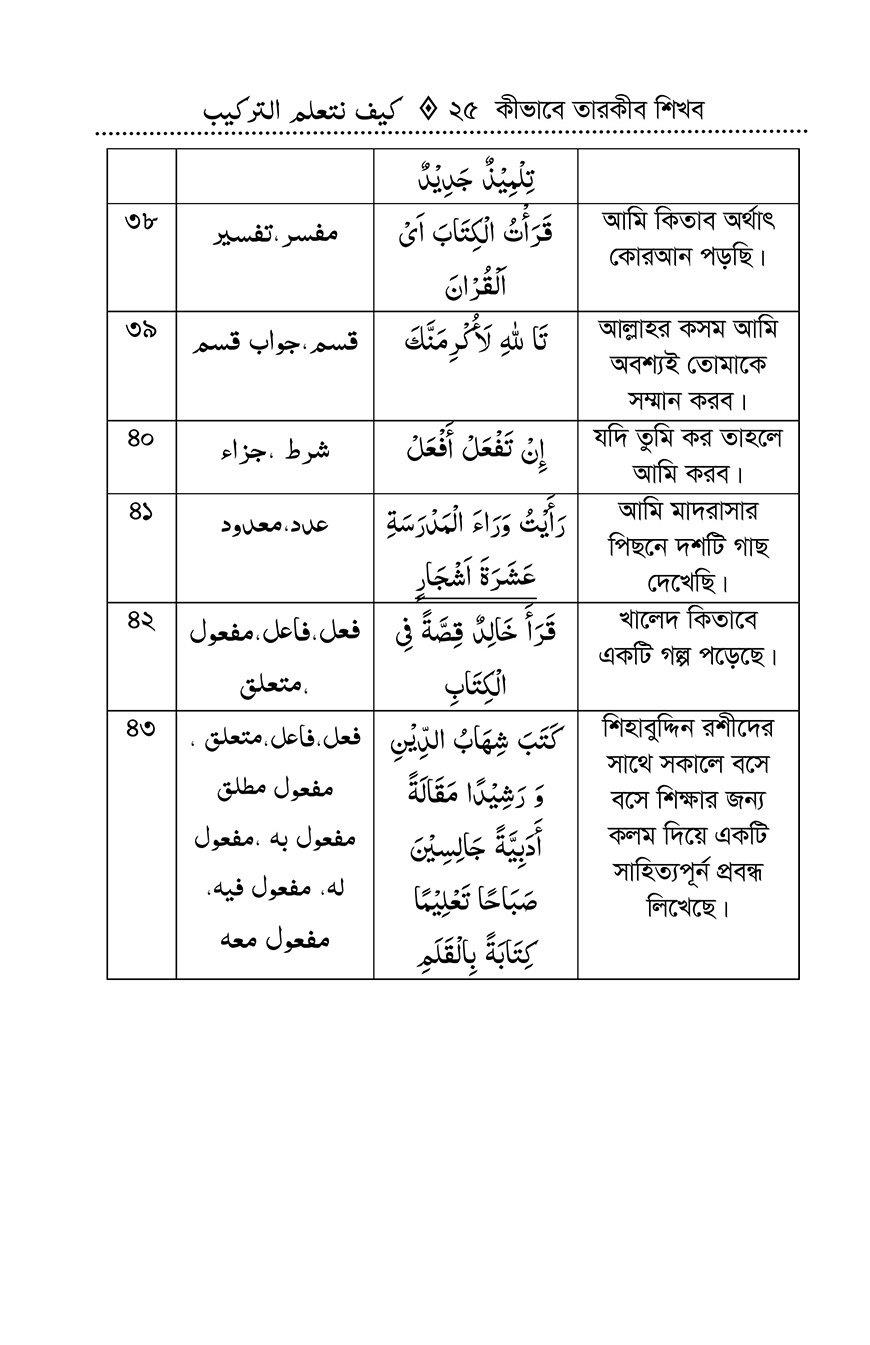 كيف نتعلم التركيب ◈ ২৫ কীভাবে তারকীব শিখব
تِلْمِيْذٌ جَدِيْدٌ
৩৮
مفسر،تفسير
قَرَأْتُ الْكِتَابَ اَىْ
اَلْقُرْانَ
আমি কিতাব অর্থাৎ
কোরআন পড়ছি।
৩৯
قسم،جواب قسم
تَا للهِ لَأُكْرِمَنَّكَ
আল্লাহর কসম আমি
অবশ্যই তোমাকে
সম্মান করব।
৪০
شرط ،جزاء
إِنْ تَفْعَلْ أَفْعَلْ
যদি তুমি কর তাহলে
আমি করব।
৪১
عدد،معدود
رَأَيْتُ وَرَاءَ الْمَدْرَسَةِ
عَشَرَةَ اَشْجَارٍ
আমি মাদরাসার
পিছনে দশটি গাছ
দেখেছি।
৪২
فعل،فاعل،مفعول
،متعلق
قَرَأَ خَالِدٌ قِصَّةً فِى
الْكِتَابِ
খালেদ কিতাবে
একটি গল্প পড়েছে।
৪৩
فعل،فاعل،متعلق ،
مفعول مطلق
مفعول به ،مفعول
له، مفعول فيه،
مفعول معه
كَتَبَ شِهَابُ الدِّيْنِ
وَ رَشِيْدًا مَقَالَةً
أَدَبِيَّةً جَالِسِيْنَ
صَبَاحًا تَعْلِيْمًا
كِتَابَةً بِالْقَلَمِ
শিহাবুদ্দিন রশীদের
সাথে সকালে বসে
বসে শিক্ষার জন্য
কলম দিয়ে একটি
সাহিত্যপূর্ন প্রবন্ধ
লিখেছে।